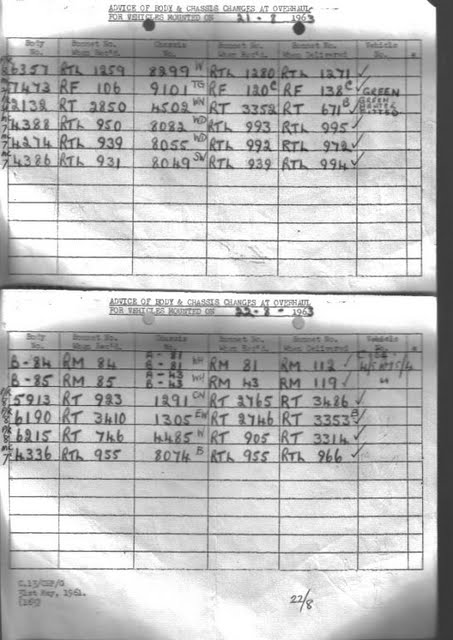 ADVICE OF BODY & CHASSIS CHANGES AT OVERHAUL
FOR VEHICLES MOUNTED ON 21-8 1963
Body No. Bonnet No. When Rec'd. Chassis No. Bonnet No. When Rec'd. Bonnet No. When Delivered Vehicle No. *
6357 RTL 1259 8299 W RTL 1280 RTL 1271 ✓
7473 RF 106 9101 TG RF 120 C RF 138 C ✓ GREEN
2132 RT 2850 4502 WN RT 3352 RT 671 B GREEN HEATER FITTED
4388 RTL 950 8082 WD RTL 993 RTL 995 ✓
4274 RTL 939 8055 WD RTL 992 RTL 972 ✓
4386 RTL 931 8049 SW RTL 939 RTL 994 ✓
ADVICE OF BODY & CHASSIS CHANGES AT OVERHAUL
FOR VEHICLES MOUNTED ON 22-8- 1963
Body No. Bonnet No. When Rec'd. Chassis No. Bonnet No. When Rec'd. Bonnet No. When Delivered Vehicle No. *
B-84 RM 84 A-81 B-81 WH RM 81 RM 112 ✓
B-85 RM 85 A-43 B-43 WH RM 43 RM 119 ✓ "
5913 RT 923 1291 CN RT 2765 RT 3486 ✓
6190 RT 3410 1305 EW RT 2746 RT 3353 B ✓
6215 RT 746 4485 N RT 905 RT 3314 ✓
4336 RTL 955 8074 B RTL 955 RTL 966 ✓
C.15/CSP/G
31st May, 1961.
(169)
22/8